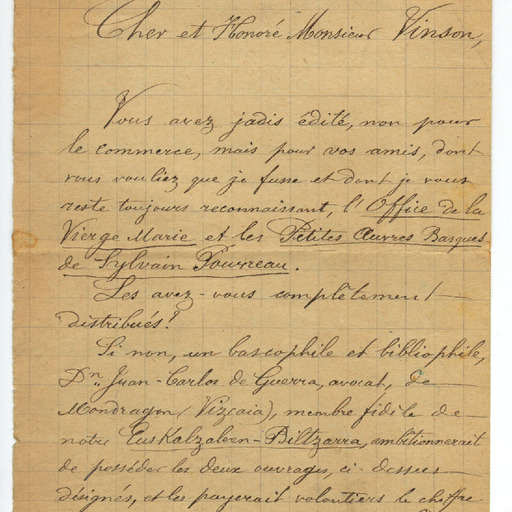 Cher et Honoré Monsieur Vinson,
Vous avez jadis édité, non pour
le commerce, mais pour vos amis, dont
vous vouliez que je fusse et dont je vous
reste toujours reconnaissant, l'Office de la
Vierge Marie et les Petites Œuvres Basques
de Sylvain Pouvreau.
Les avez-vous complètement
distribués?
Si non, un bascophile et bibliophile,
Dn. Juan-Carlos de Guerra, avocat, de
Mondragon (Vizcaia), membre fidèle de
notre Euskalzaleen-Biltzarra, ambitionnerait
de posséder les deux ouvrages, ci-dessus
désignés, et les payerait volontiers le chiffre